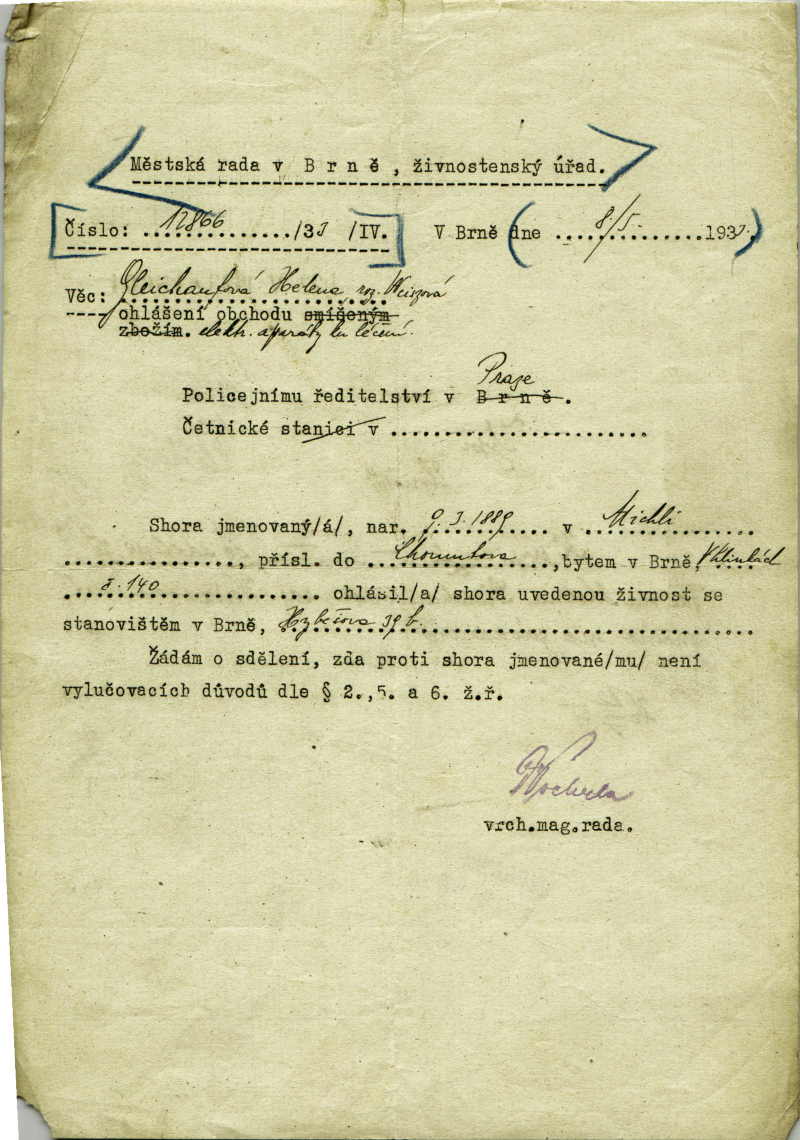 Městská rada v B r n ě , živnostenský úřad.
Číslo: ..12866............/33 /IV. V Brně dne ....8/5.........1933.
Věc: Gleichaufová Helena, roz. Weiszová
ohlášení obchodu smíšeným
zbožím. elektr. aparáty ku léčení.
Praze
Policejnímu ředitelství v B r n ě .
Četnické stanici v ........................
Shora jmenovaný/á/, nar. 9.3.1889 v Michli
................, přísl. do Chomutova, bytem v Brně, V hlinkách
č. 140 ohlásil/a/ shora uvedenou živnost se
stanovištěm v Brně, 39 b.
Žádám o sdělení, zda proti shora jmenované/mu/ není
vylučovacích důvodů dle § 2.,5. a 6. ž.ř.
vrch.mag.rada.